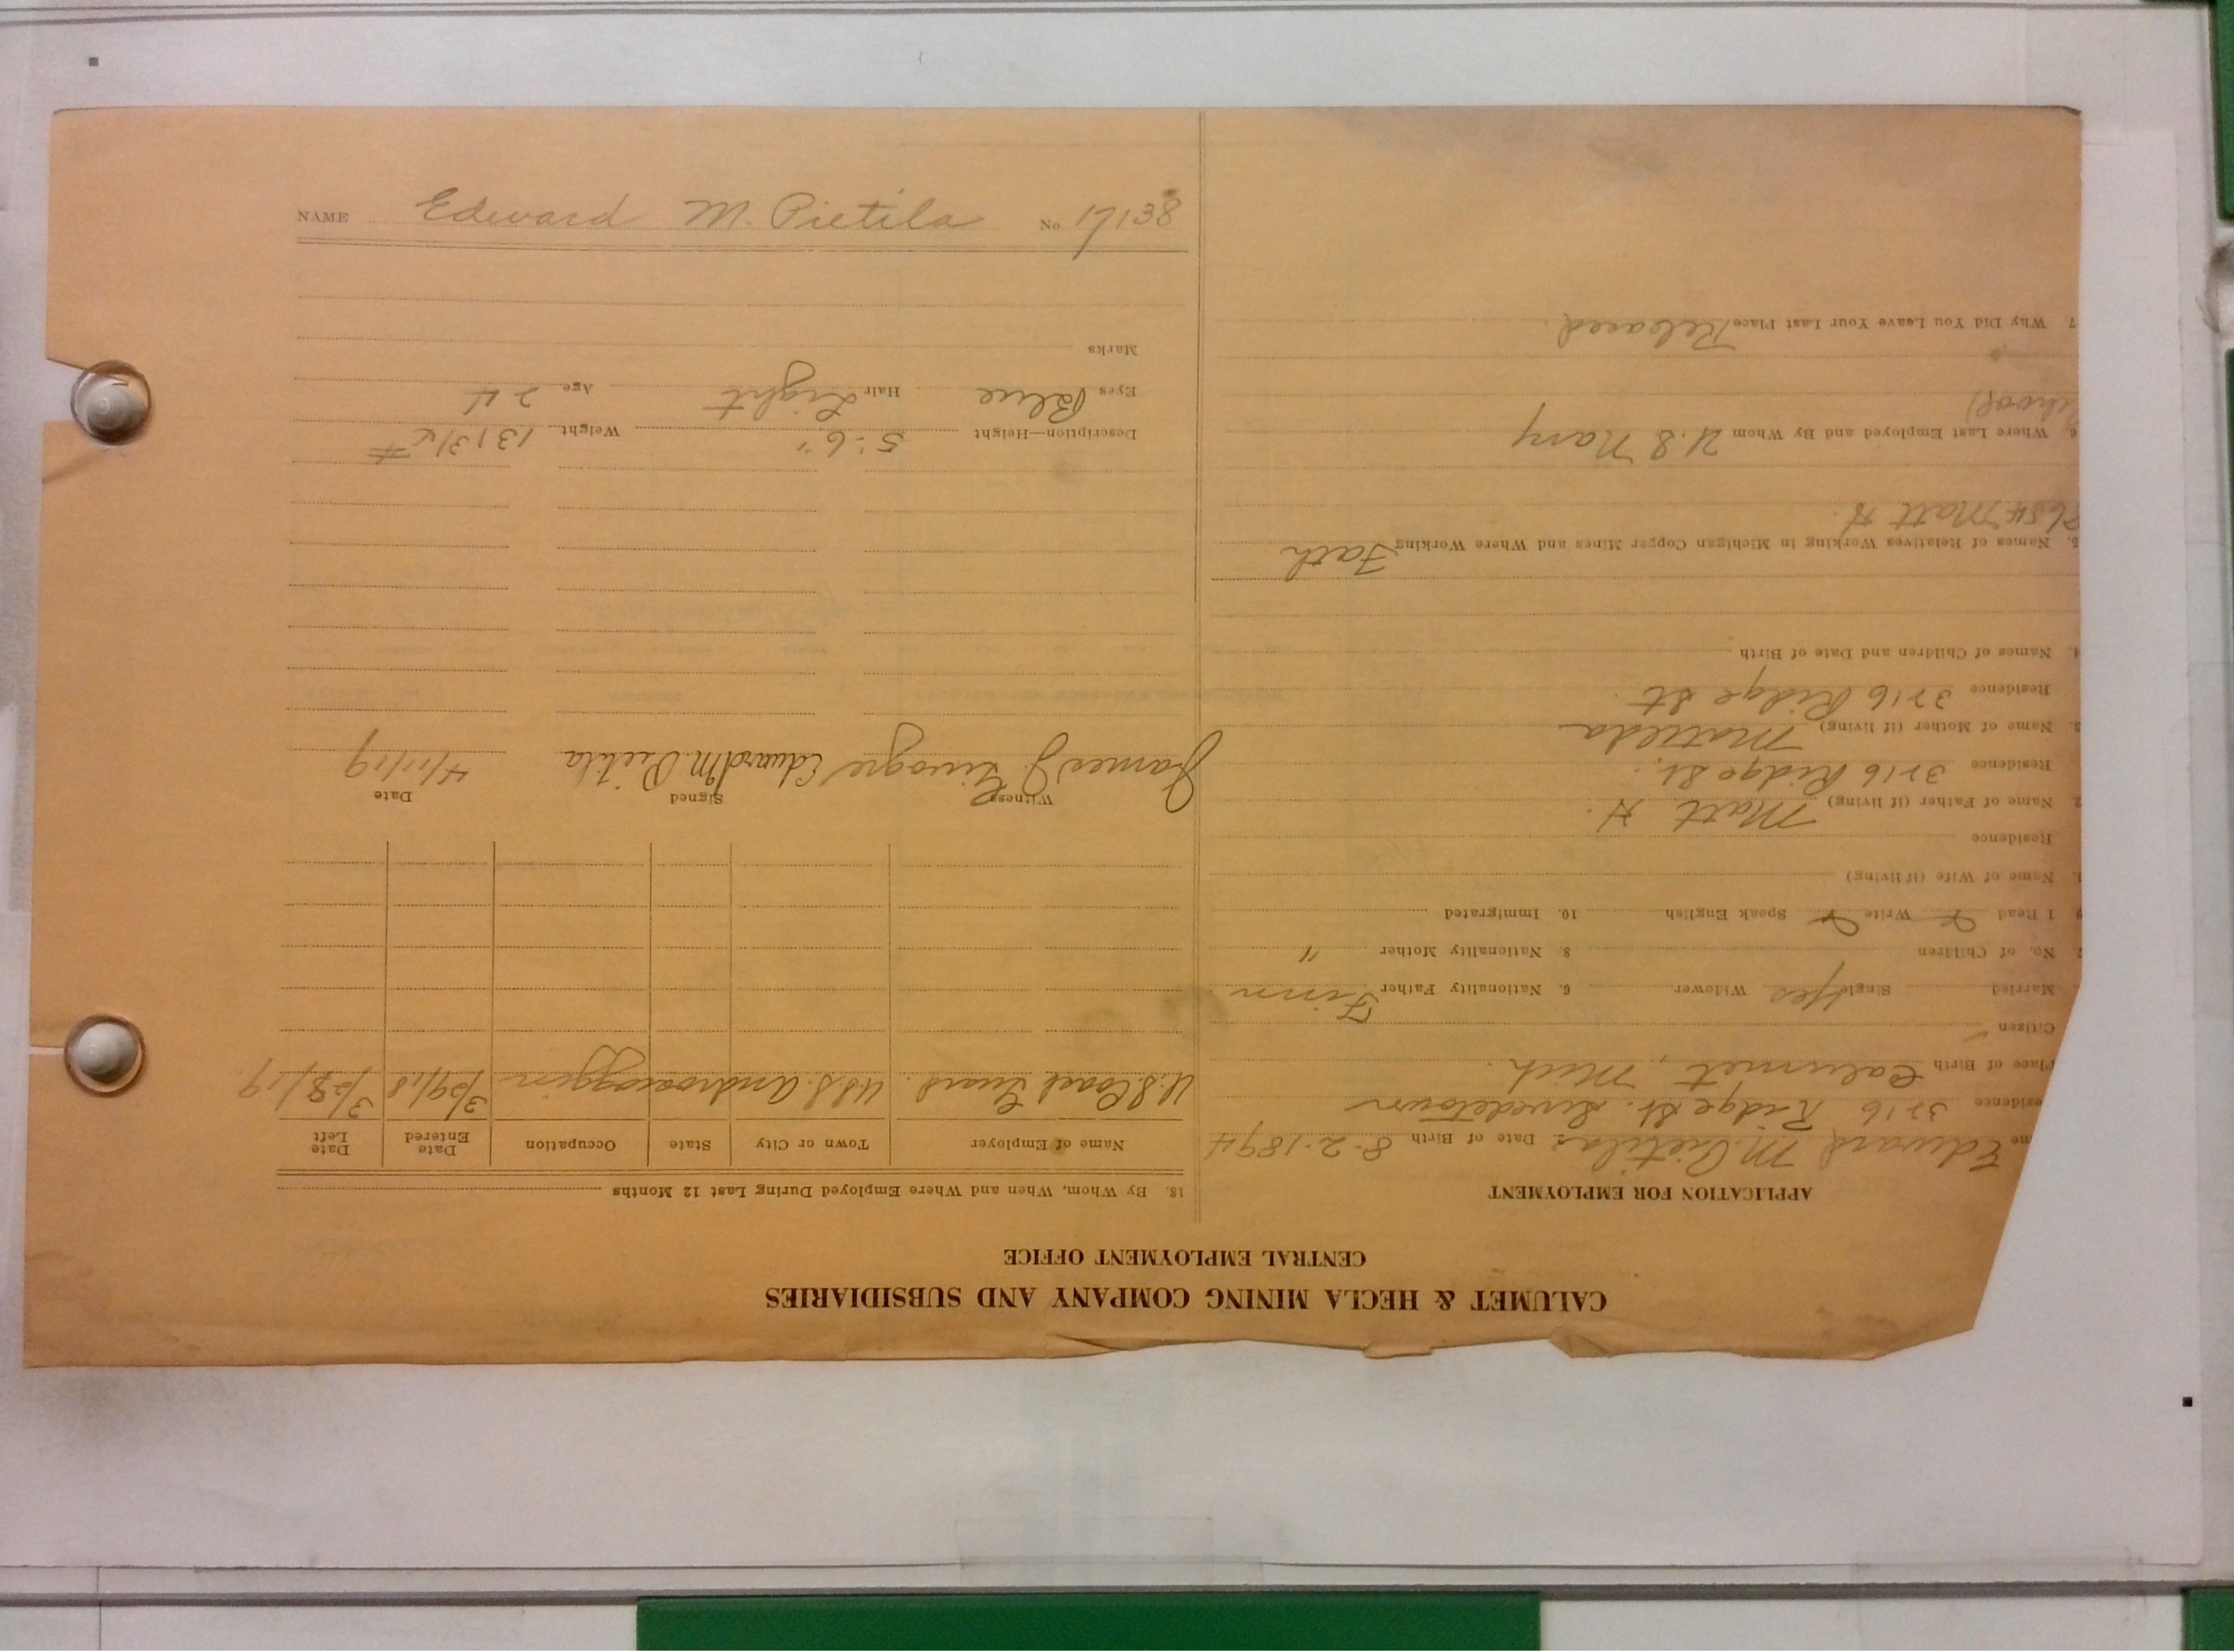 NAME Edward M. Pietila No. 17138
CALUMET & HECLA MINING COMPANY AND SUBSIDIARIES
CENTRAL EMPLOYMENT OFFICE
APPLICATION FOR EMPLOYMENT
me Edward M. Pietila Date of Birth 8-2-1894
esidence 3216 Ridge St. Swedetown
Place of Birth Calumet, Mich.
Citizen
Married Single Yes Widower 6. Nationality Father Finn
7. No. of Children 8. Nationality Mother "
9. I Read Write Speak English 10. Immigrated
1. Name of Wife (if living)
Residence
2. Name of Father (if living) Matt H.
Residence 3216 Ridge St.
3. Name of Mother (if living) Matilda
Residence 3216 Ridge St.
4. Names of Children and Date of Birth
5. Names of Relatives Working in Michigan Copper Mines and Where Working Fath
Matt H.
6. Where Last Employed and By Whom U.S Navy
7. Why Did You Leave Your Last Place Released.
18. By Whom, When and Where Employed During Last 12 Months
Name of Employer Town or City State Occupation Date Entered Date Left
U.S Coast Guard. U.S.S. Androscoggin 3/29/18 3/28/19
Witness Signed Date
James J. Edward M. Pietila 4/11/19
Description—Height 5'-6" Weight 131 3/4 #
Eyes Blue Hair Light Age 24
Marks